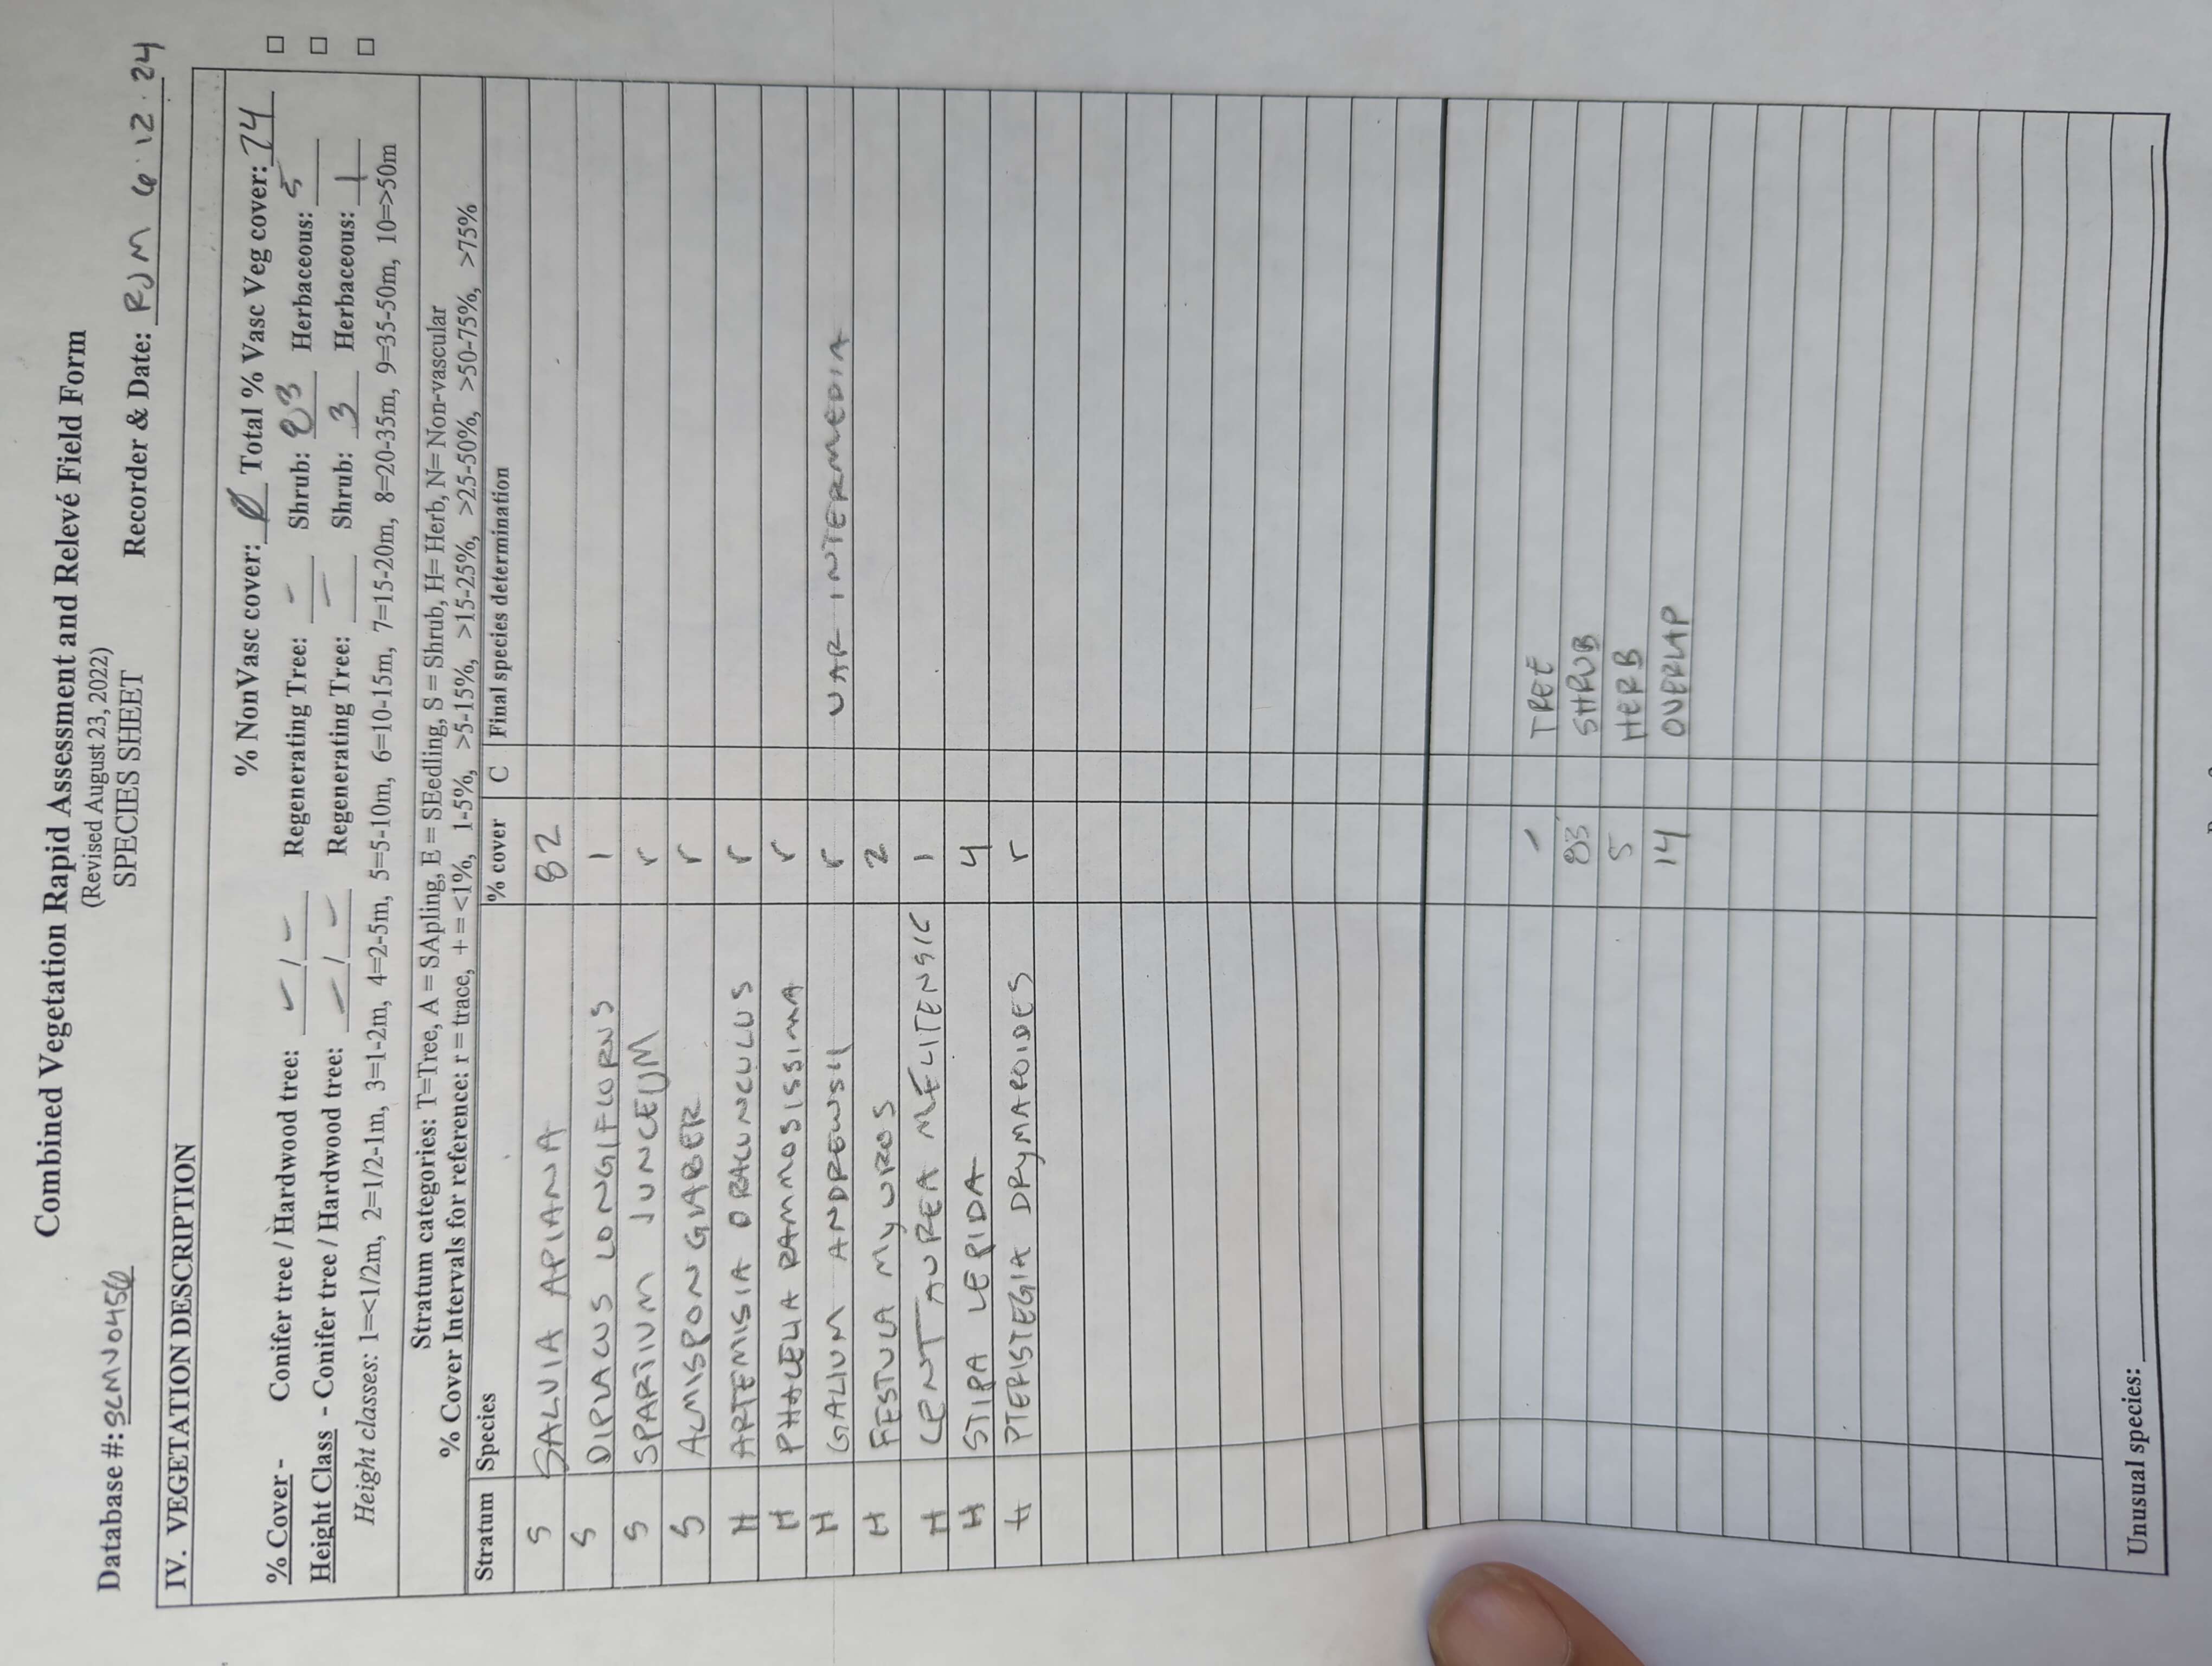 Combined Vegetation Rapid Assessment and Relevé Field Form
(Revised August 23, 2022)
SPECIES SHEET
Database #: SCMV0456 Recorder & Date: RJM 6.12.24
IV. VEGETATION DESCRIPTION
% NonVasc cover: Ø Total % Vasc Veg cover: 74
% Cover - Conifer tree / Hardwood tree: - / - Regenerating Tree: - Shrub: 83 Herbaceous: 5
Height Class - Conifer tree / Hardwood tree: - / - Regenerating Tree: - Shrub: 3 Herbaceous: 1
Height classes: 1=<1/2m, 2=1/2-1m, 3=1-2m, 4=2-5m, 5=5-10m, 6=10-15m, 7=15-20m, 8=20-35m, 9=35-50m, 10=>50m
Stratum categories: T=Tree, A = SApling, E = SEedling, S = Shrub, H= Herb, N= Non-vascular
% Cover Intervals for reference: r = trace, + = <1%, 1-5%, >5-15%, >15-25%, >25-50%, >50-75%, >75%
Stratum Species % cover C Final species determination
S SALVIA APIANA 82
S DIPLACUS LONGIFLORUS 1
S SPARTIUM JUNCEUM r
S ACMISPON GLABER r
H ARTEMISIA DRACUNCULUS r
H PHACELIA RAMMOSISSIMA r
H GALIUM ANDREWSII r VAR INTERMEDIA
H FESTUCA MYUROS 2
H CENTAUREA MELITENSIS 1
H STIPA LEPIDA 4
H PTERISTEGIA DRYMAROIDES r
- TREE
83 SHRUB
5 HERB
14 OVERLAP
Unusual species: